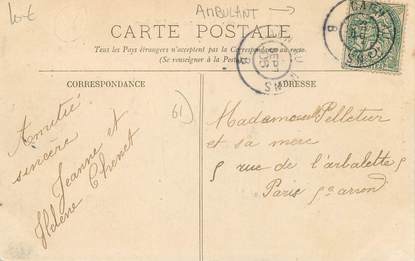 10€
AMBULANT →
CARTE POSTALE
Tous les Pays étrangers n'acceptent pas la Correspondance au recto
(Se renseigner à la Poste)
CORRESPONDANCE
ADRESSE
Amitié
sincère
Jeanne et
Hélène Chenet
61
Madame Pelletier
et sa mère
5 rue de l'arbalette 5
Paris 5e arron